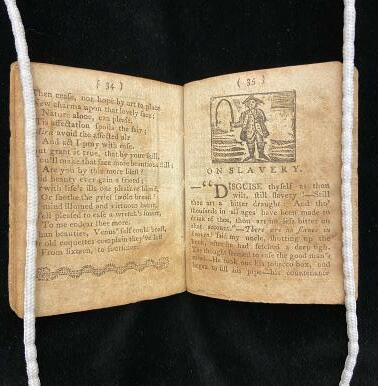 ( 34 )
then cease, nor hope by art to place
New charms upon that lovely face:
Nature alone, can please.
Tis affectation spoils the fair;
avoid the affected air
And act I pray with ease.
But grant it true, that by your skill,
You'll make that face more beauteous still;
Are you by this more blest?
beauty ever gain a friend?
with life's ills one pleasure blend,
Or soothe the grief swoln breast?
mind illumed and virtuous heart,
Well pleased to ease a wretch's smart,
To me endear thee more;
than beauties, Venus' self could boast,
Or old coquettes complain they've lost
From sixteen, to fourscore.
( 35 )
ON SLAVERY.
—"DISGUISE thyself as thou
wilt, still slavery!—Still
thou art a bitter draught! And tho'
thousands in all ages have been made to
drink of thee, thou art no less bitter on
that account."—There are no slaves in
said my uncle, shutting up the
book, after he had fetched a deep sigh.
thought seemed to ease the good man's
He took out his tobacco box, and
began to fill his pipe—his countenance